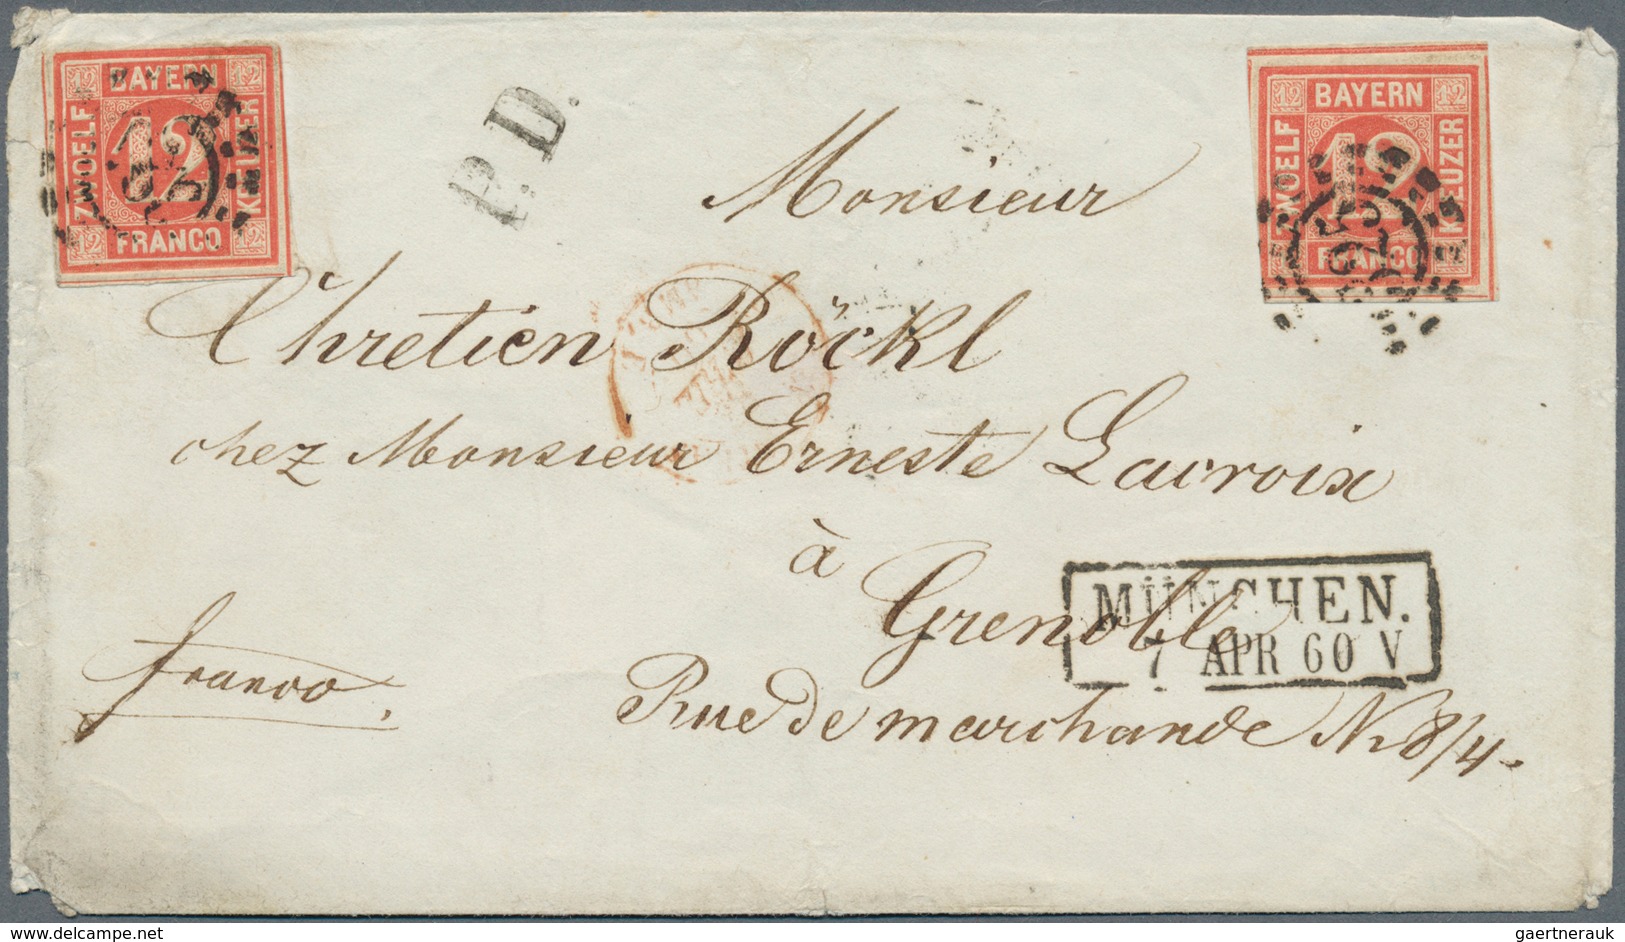 12 BAYERN 12
ZWOELF 12 KEUZER
12 FRANCO 12
P.D.
12 BAYERN 12
ZWOELF 12 KEUZER
FRANCO
Monsieur
Chretien Röckl
chez Monsieur Erneste Lacroix
à
Grenoble
MÜNCHEN.
7 APR 60 V
franco.
Rue de marchande N. 8/4.
delcampe.net
gaertnerauk